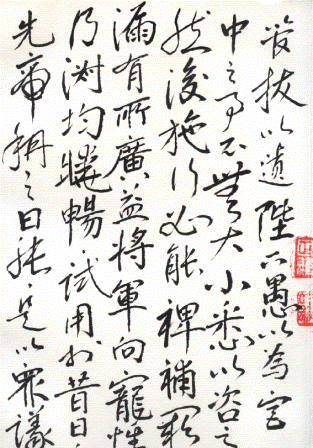 簡拔以遺陛下愚以為宮
中之事事無大小悉以咨之
然後施行必能裨補闕
漏有所廣益將軍向寵性
行淑均曉暢試用於昔日
先帝稱之曰能是以眾議